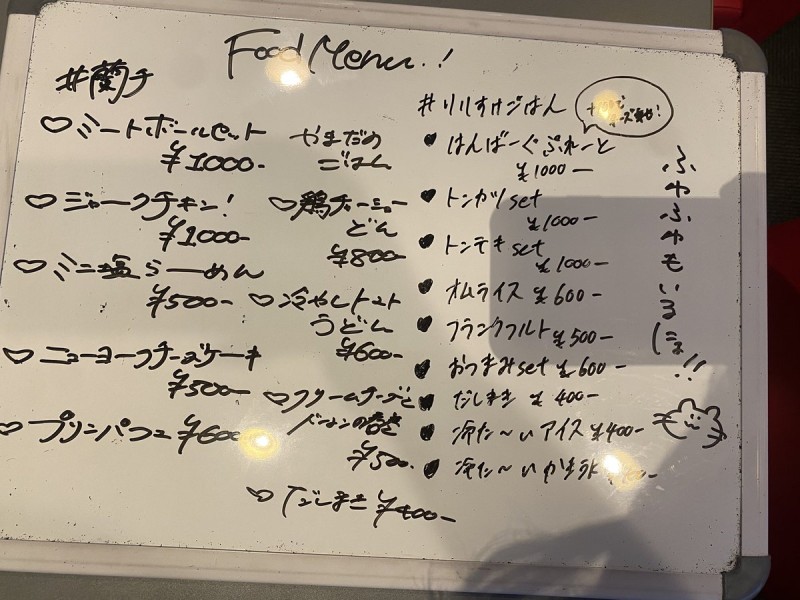 Food Menu.!
#蘭チ
♡ミートボールセット
¥1000-
♡ジャークチキン!
¥1000-
♡ミニ塩らーめん
¥500-
♡ニューヨークチーズケーキ
¥500-
♡プリンパフェ ¥600
やまだの
ごはん
♡鶏チャーシュー
どん
¥800-
♡冷やしトマト
うどん
¥600-
♡クリームチーズと
¥500.
♡だしまき ¥400-
#りりすけごはん
♥はんばーぐぷれーと
¥1000-
♥トンカツset
¥1000-
♥トンテキset
¥1000-
♥オムライス ¥600-
♥フランクフルト ¥500-
♥おつまみset ¥600-
♥だしまき ¥400-
♥冷た〜いアイス ¥400-
♥冷た〜いかき氷
ふわふわもいるにょ!!